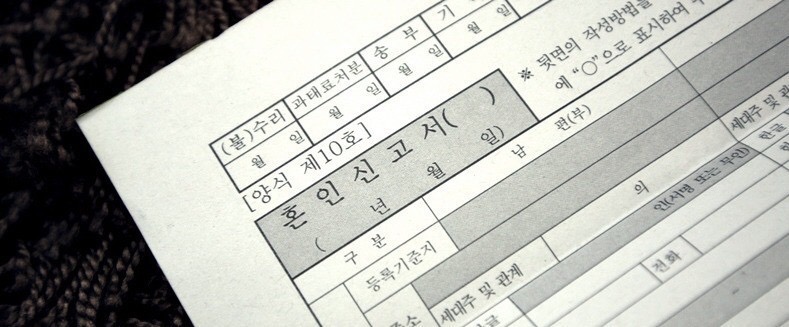 (불)수리 과태료처분 송 부 기
월 일 월 일 월 일 월 일
※ 뒷면의 작성방법을
에 "○"으로 표시하여
[양식 제10호]
혼 인 신 고 서( )
( 년 월 일)
구 분 남 편(부)
등록기준지
세대주 및 관
의
인(서명 또는 무인)
세대주 및 관계
전화